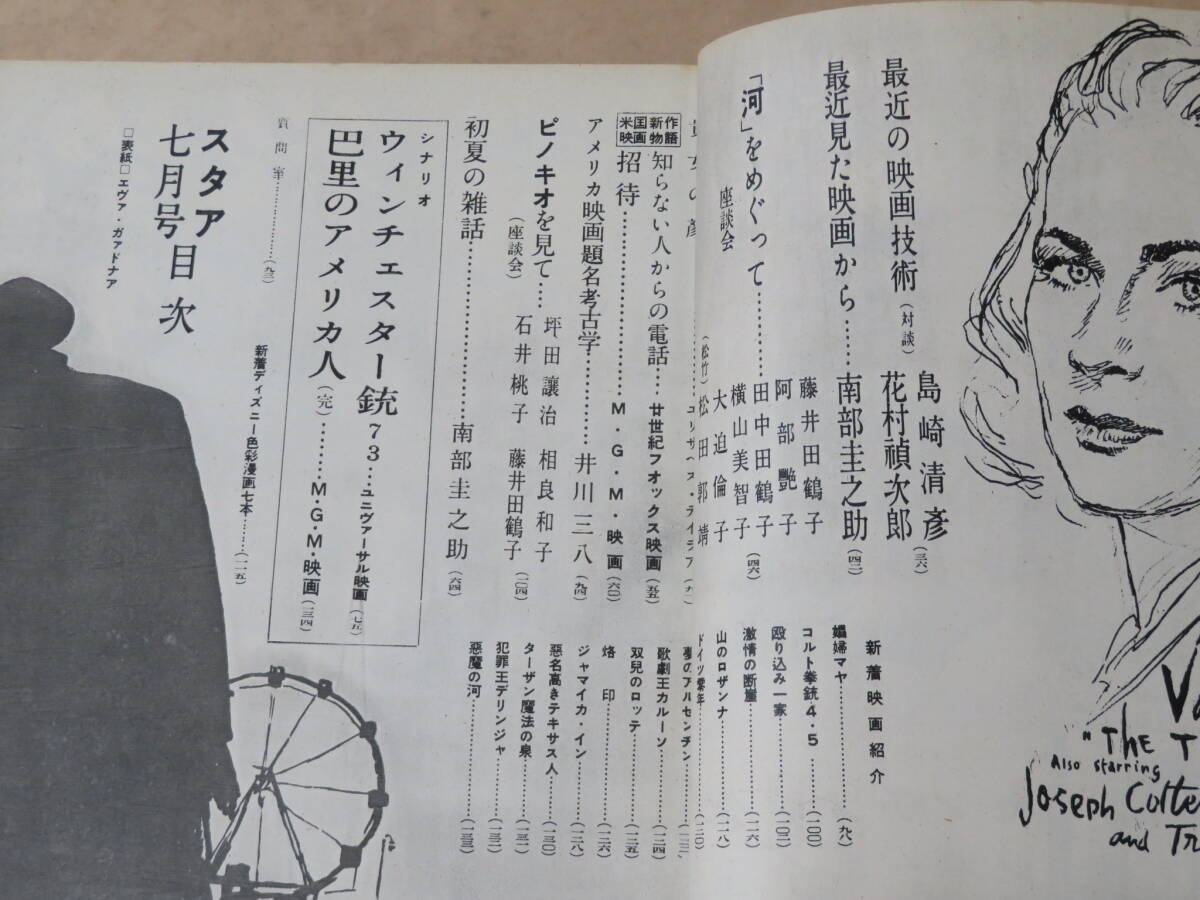 最近の映画技術(対談)
島崎清彦
花村禎次郎(三六)
最近見た映画から……南部圭之助(四二)
「河」をめぐって…………
座談会
藤井田鶴子
阿部艷子
田中田鶴子
横山美智子
大迫倫子
(松竹)松田郭靖
(四六)
米国映画
新作物語
知らない人からの電話…廿世紀フオックス映画(五五)
招待………………M・G・M・映画(六〇)
アメリカ映画題名考古学………井川三八(九四)
ピノキオを見て……
(座談会)
坪田譲治 相良和子
石井桃子 藤井田鶴子
(一〇四)
初夏の雑話………………南部圭之助(六四)
シナリオ
ウィンチェスター銃73…ユニヴァーサル映画(七五)
巴里のアメリカ人(完)………M・G・M・映画(一三四)
質問室………………(九三)
新着ディズニー色彩漫画七本………(一一五)
スタア
七月号目次
□表紙□エヴァ・ガァドナア
新着映画紹介
娼婦マヤ………………(九八)
コルト拳銃4・5………(一〇〇)
殴り込み一家…………(一〇二)
激情の断崖……………(一一六)
山のロザンナ…………(一一八)
ドイツ零年……………(一二〇)
夢のアルゼンチン
歌劇王カルーソ………(一二四)
双児のロッテ…………(一二五)
烙印……………………(一二六)
ジャマイカ・イン……(一二八)
悪名高きテキサス人…(一三〇)
ターザン魔法の泉……(一三一)
犯罪王デリンジャ……(一三二)
悪魔の河………………(一三三)
"The T
Also starring
Joseph Cotte
and Tr